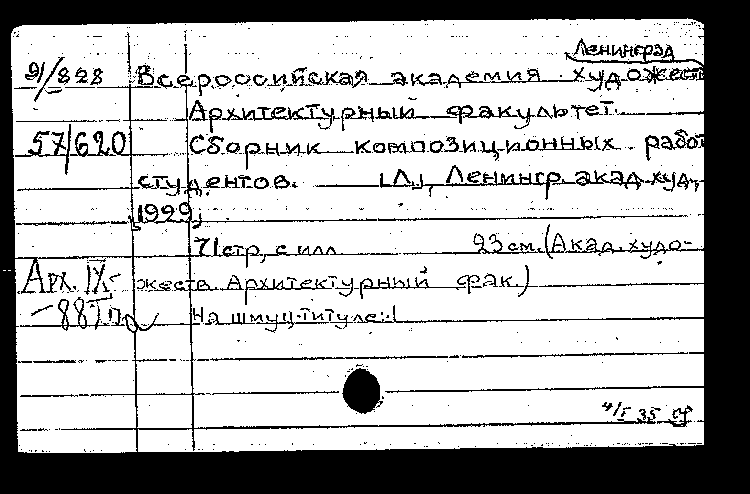 Ленинград
91/828 Всероссийская академия художеств
Архитектурный факультет.
57/620 Сборник композиционных работ
студентов. [Л], Ленингр. акад. худ.,
[1929]
71 стр., с илл 23 см. (Акад. худо-
Арх. IX- жеств. Архитектурный фак.)
На шмуц-титуле: 1
4/I 35